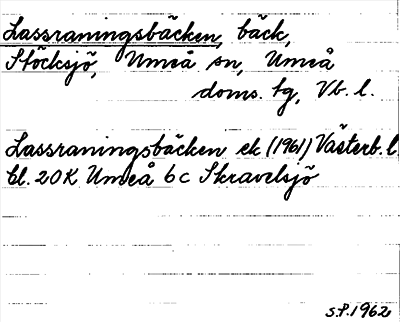 Lassraningsbäcken, bäck,
Stöcksjö, Umeå sn, Umeå
doms. tg, Vb. l.
Lassraningsbäcken ek (1961) Västerb. l
bl. 20K Umeå 6c Skravelsjö
S.P. 1962